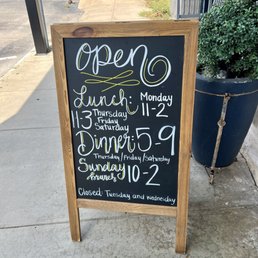 Open
Lunch: Monday 11-2
11-3 Thursday
Friday
Saturday
Dinner: 5-9
Thursday/Friday/Saturday
Sunday
Brunch 10-2
Closed: Tuesday and Wednesday